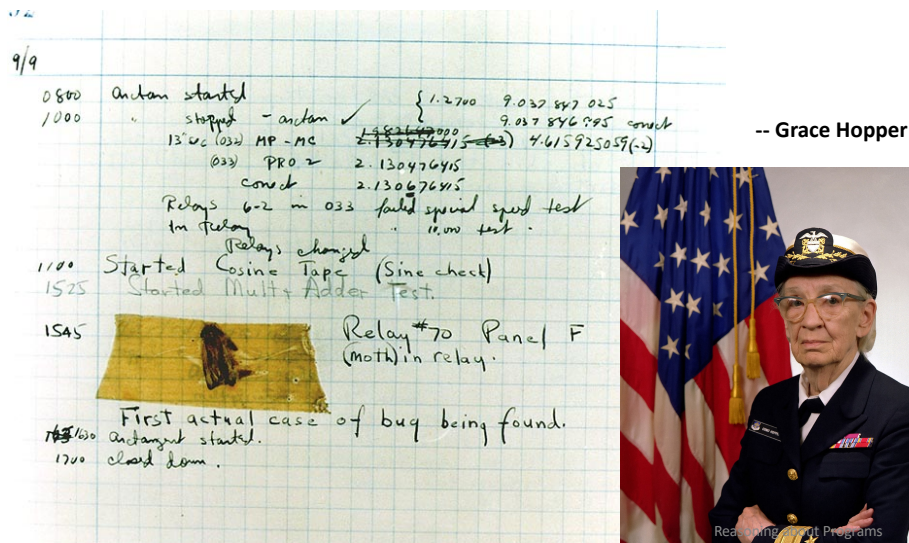 9/9
0800 arctan started
1000 " stopped - arctan ✓
{ 1.2700 9.037 847 025
9.037 846 995 correct
13"uc (032) MP - MC 2.130476415 (-3) 4.615925059(-2)
(033) PRO 2 2.130476415
correct 2.130676415
Relays 6-2 in 033 failed special speed test
In Relay " 10.000 test .
Relays changed
1100 Started Cosine Tape (Sine check)
1525 Started Mult+ Adder Test.
1545 Relay #70 Panel F
(moth) in relay.
First actual case of bug being found.
1630 arctangent started.
1700 closed down.
-- Grace Hopper
Reasoning about Programs